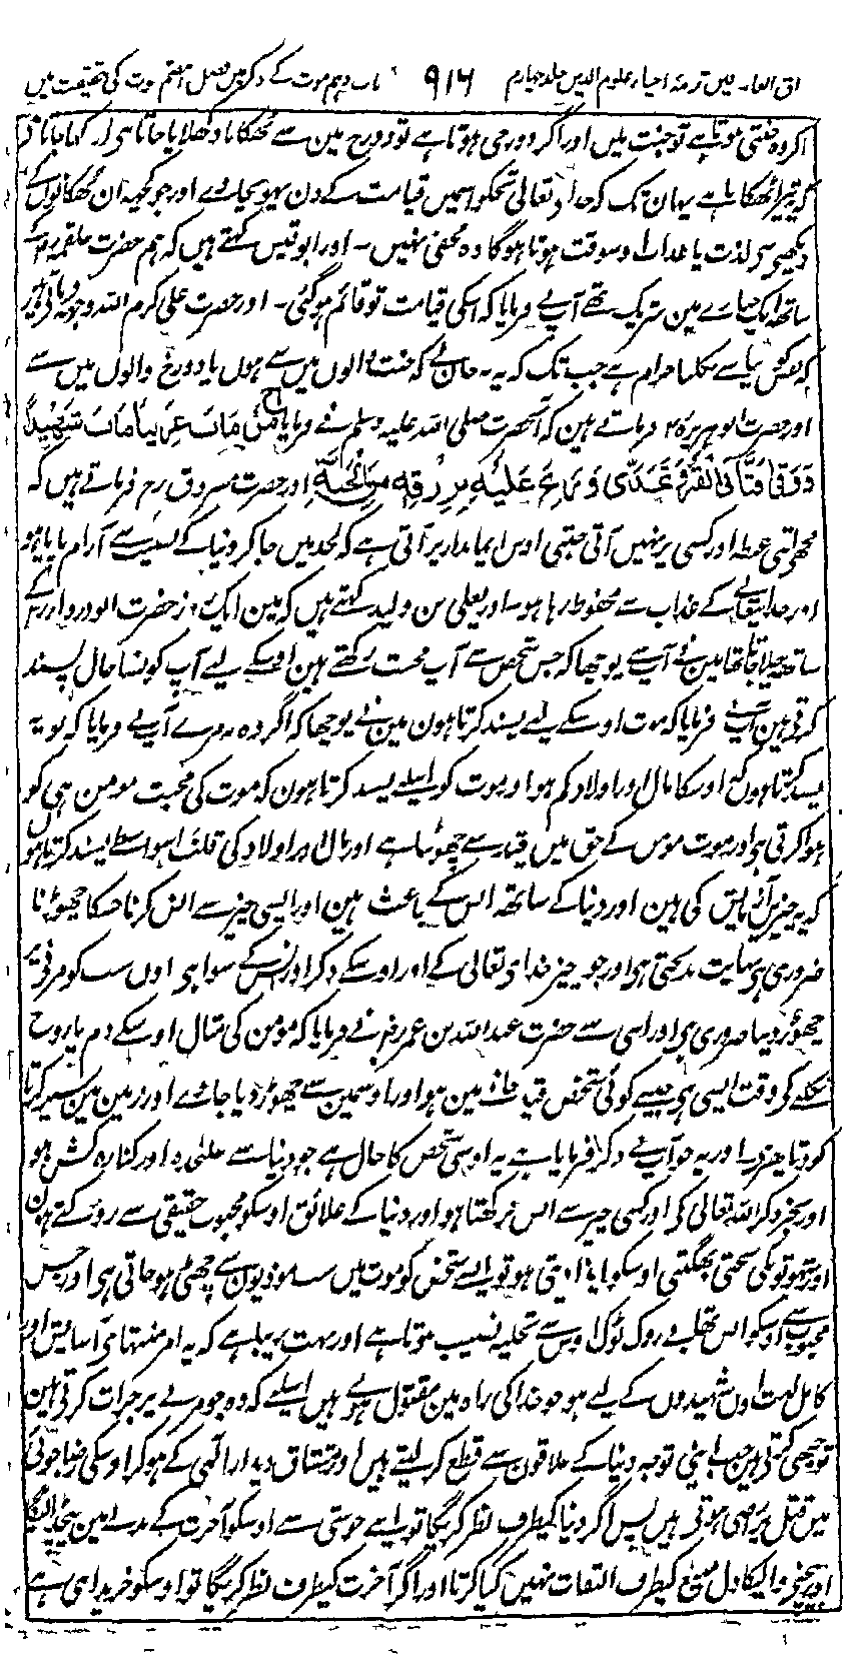 ترجمہ احیاء علوم الدین جلد چہارم ۹۱۶ باب دہم موت کے ذکر میں فصل ہفتم موت کی حقیقت میں
اگر وہ جنتی ہوتا ہے تو جنت میں اور اگر دوزخی ہوتا ہے تو دوزخ مین سے ٹھکانا دکھلایا جاتا ہی اور کہا جاتا
کہ یہ تیرا ٹھکانا ہے یہان تک کہ خداے تعالی تجکو اسمیں قیامت کے دن پہونچاوے اور جو کچھ ان ٹھکانوں کے
دیکھنے سے لذت یا عذاب اوسوقت ہوتا ہوگا وہ مخفی نہیں ۔ اور ابو قیس کہتے ہیں کہ ہم حضرت علقمہ رض کے
ساتھ ایک جنازے مین شریک تھے آپ نے فرمایا کہ اسکی قیامت تو قائم ہوگئی ۔ اور حضرت علی کرم اللہ وجہہ فرماتے ہیں
کہ نفس پر دنیا سے نکلنا حرام ہے جب تک کہ یہ نہ جان لے کہ جنت والوں میں سے ہوں یا دوزخ والوں میں سے
اور حضرت ابو ہریرہ رض فرماتے ہین کہ آنحضرت صلی اللہ علیہ وسلم نے فرمایا مَنْ مَاتَ غَرِیبًا مَاتَ شَہِیدًا
وَوُقِيَ فَتَّانَ الْقَبْرِ وَغُدِّیَ وَرِیحَ عَلَیْهِ بِرِزْقِهٖ مِنَ الْجَنَّةِ اور حضرت مسروق رح فرماتے ہیں کہ
مجھ کو اتنی غبطہ اور کسی پر نہیں آتی جتنی اوس ایماندار پر آتی ہے کہ لحد میں جا کر دنیا کے آرام پایا ہو
اور خدا تعالے کے عذاب سے محفوظ رہا ہو۔ اور یعلی بن ولید کہتے ہیں کہ مین ایک روز حضرت ابودرداء رض کے
ساتھ چلا جاتا تھا مین نے آپ سے پوچھا کہ جس شخص سے آپ محبت رکھتے ہین اوسکے لیے آپ کونسا حال پسند
کرتے ہین آپ نے فرمایا کہ موت اوسکے لیے پسند کرتا ہون مین نے پوچھا کہ اگر وہ نہ مرے آپ نے فرمایا کہ تو یہ
پسند کرتا ہوں کہ اوسکا مال و اولاد کم ہو اور موت کو اسلیے پسند کرتا ہون کہ موت کی محبت مومن ہی کو
ہوا کرتی ہی اور موت مومن کے حق میں قید سے چھوٹنا ہے اور مال اور اولاد کی قلت اسواسطے پسند کرتا ہوں
کہ یہ چیزیں آزمایش کی ہین اور دنیا کے ساتھ انس کے باعث ہین اور ایسی چیز سے انس کرنا جسکا چھوڑنا
ضروری ہی نہایت بدبختی ہی اور جو چیز خداے تعالی کے اور اوسکے ذکر اور انس کے سوا ہی اوں سب کو مرنے پر
چھوڑ دینا ضروری ہی اور اسی سے حضرت عبد اللہ بن عمر رض نے فرمایا کہ مومن کی مثال اوسکے دم یا روح
نکلنے کے وقت ایسی ہی جیسے کوئی شخص قیدخانہ مین ہو اور اوسمین سے چھوڑ دیا جاوے اور زمین مین سیر کرتا
کودتا پھرے اور یہ جو آپ نے ذکر فرمایا ہے یہ اوسی شخص کا حال ہے جو دنیا سے علٰیحدہ اور کنارہ کش ہو
اور بجز ذکر اللہ تعالی کے اور کسی چیز سے انس نرکھتا ہو اور دنیا کے علائق اوسکو محبوب حقیقی سے روکتے ہون
اور شہوتونکی سختی بھگتنی اوسکو ایذا دیتی ہو تو ایسے شخص کو موت میں سب موذیون سے چھٹی ہوجاتی ہی اور جس
محبوب سے اوسکو انس تھا بے روک ٹوک اوس سے تخلیہ نصیب ہوتا ہے اور بہت زیبا ہے کہ یہ امر منتہاے آسایش اور
کامل لذت اون شہیدوں کے لیے ہو جو خدا کی راہ مین مقتول ہوے ہیں اسلیے کہ وہ جو مرنے پر جرات کرتے ہین
تو جبھی کرتے ہین جب اپنی توجہ دنیا کے علاقون سے قطع کر لیتے ہیں اور مشتاق دیدار الٰہی کے ہو کر اوسکی رضا جوئی
میں قتل پر راضی ہوتے ہیں پس اگر دنیا کیطرف نظر کریگا تو اسے خوشی سے اوسکو آخرت کے بدلے مین بیچ ڈالیگا
اور بیچنے والیکا دل مبیع کیطرف التفات نہیں کیا کرتا اور اگر آخرت کیطرف نظر کریگا تو اوسکو خریدا ہی ہے